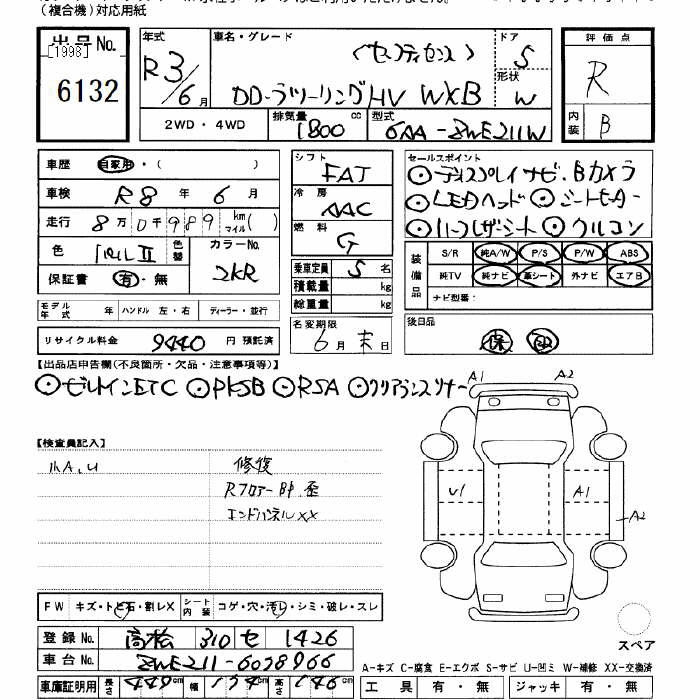 (複合機)対応用紙
出品No.
[1998]
6132
年式 R3/6月
車名・グレード (セーフティセンス)
カローラツーリングHV WXB
ドア 5
形状 W
評価点 R
内装 B
2WD・4WD 排気量 1800 cc 型式 6AA-ZWE211W
車歴 自家用・( )
車検 R8年6月
走行 8万0千989 km マイル( )
色 パールⅡ 色替 カラーNo. 2KR
保証書 有・無
モデル年式 年 ハンドル 左・右 ディーラー・並行
リサイクル料金 9440 円 預託済
シフト FAT
冷房 AAC
燃料 G
乗車定員 5名
積載量 kg
総重量 kg
名変期限 6月末日
セールスポイント
⊙ディスプレイナビ・Bカメラ
⊙LEDヘッド ⊙シートヒーター
⊙ハーフレザーシート ⊙クルコン
装備品 S/R 純A/W P/S P/W ABS
純TV 純ナビ 革シート 外ナビ エアB
ナビ型番:
後日品
保 取
【出品店申告欄(不良箇所・欠品・注意事項等)】
⊙ビルトインETC ⊙PKSB ⊙RSA ⊙クリアランスソナー
【検査員記入】
小A.U 修復
Rフロアー 歪
エンドパネルXX
A1 A2
U1 A1
A2
FW キズ・トビ石・割レX シート内装 コゲ・穴・汚レ・シミ・破レ・スレ
スペア
登録No. 高松 310 セ 1426
車台No. ZWE211-6078966
A-キズ C-腐食 E-エクボ S-サビ U-凹ミ W-補修 XX-交換済
車庫証明用 長さ 449cm 幅 174cm 高さ 146cm
工具 有・無 ジャッキ 有・無